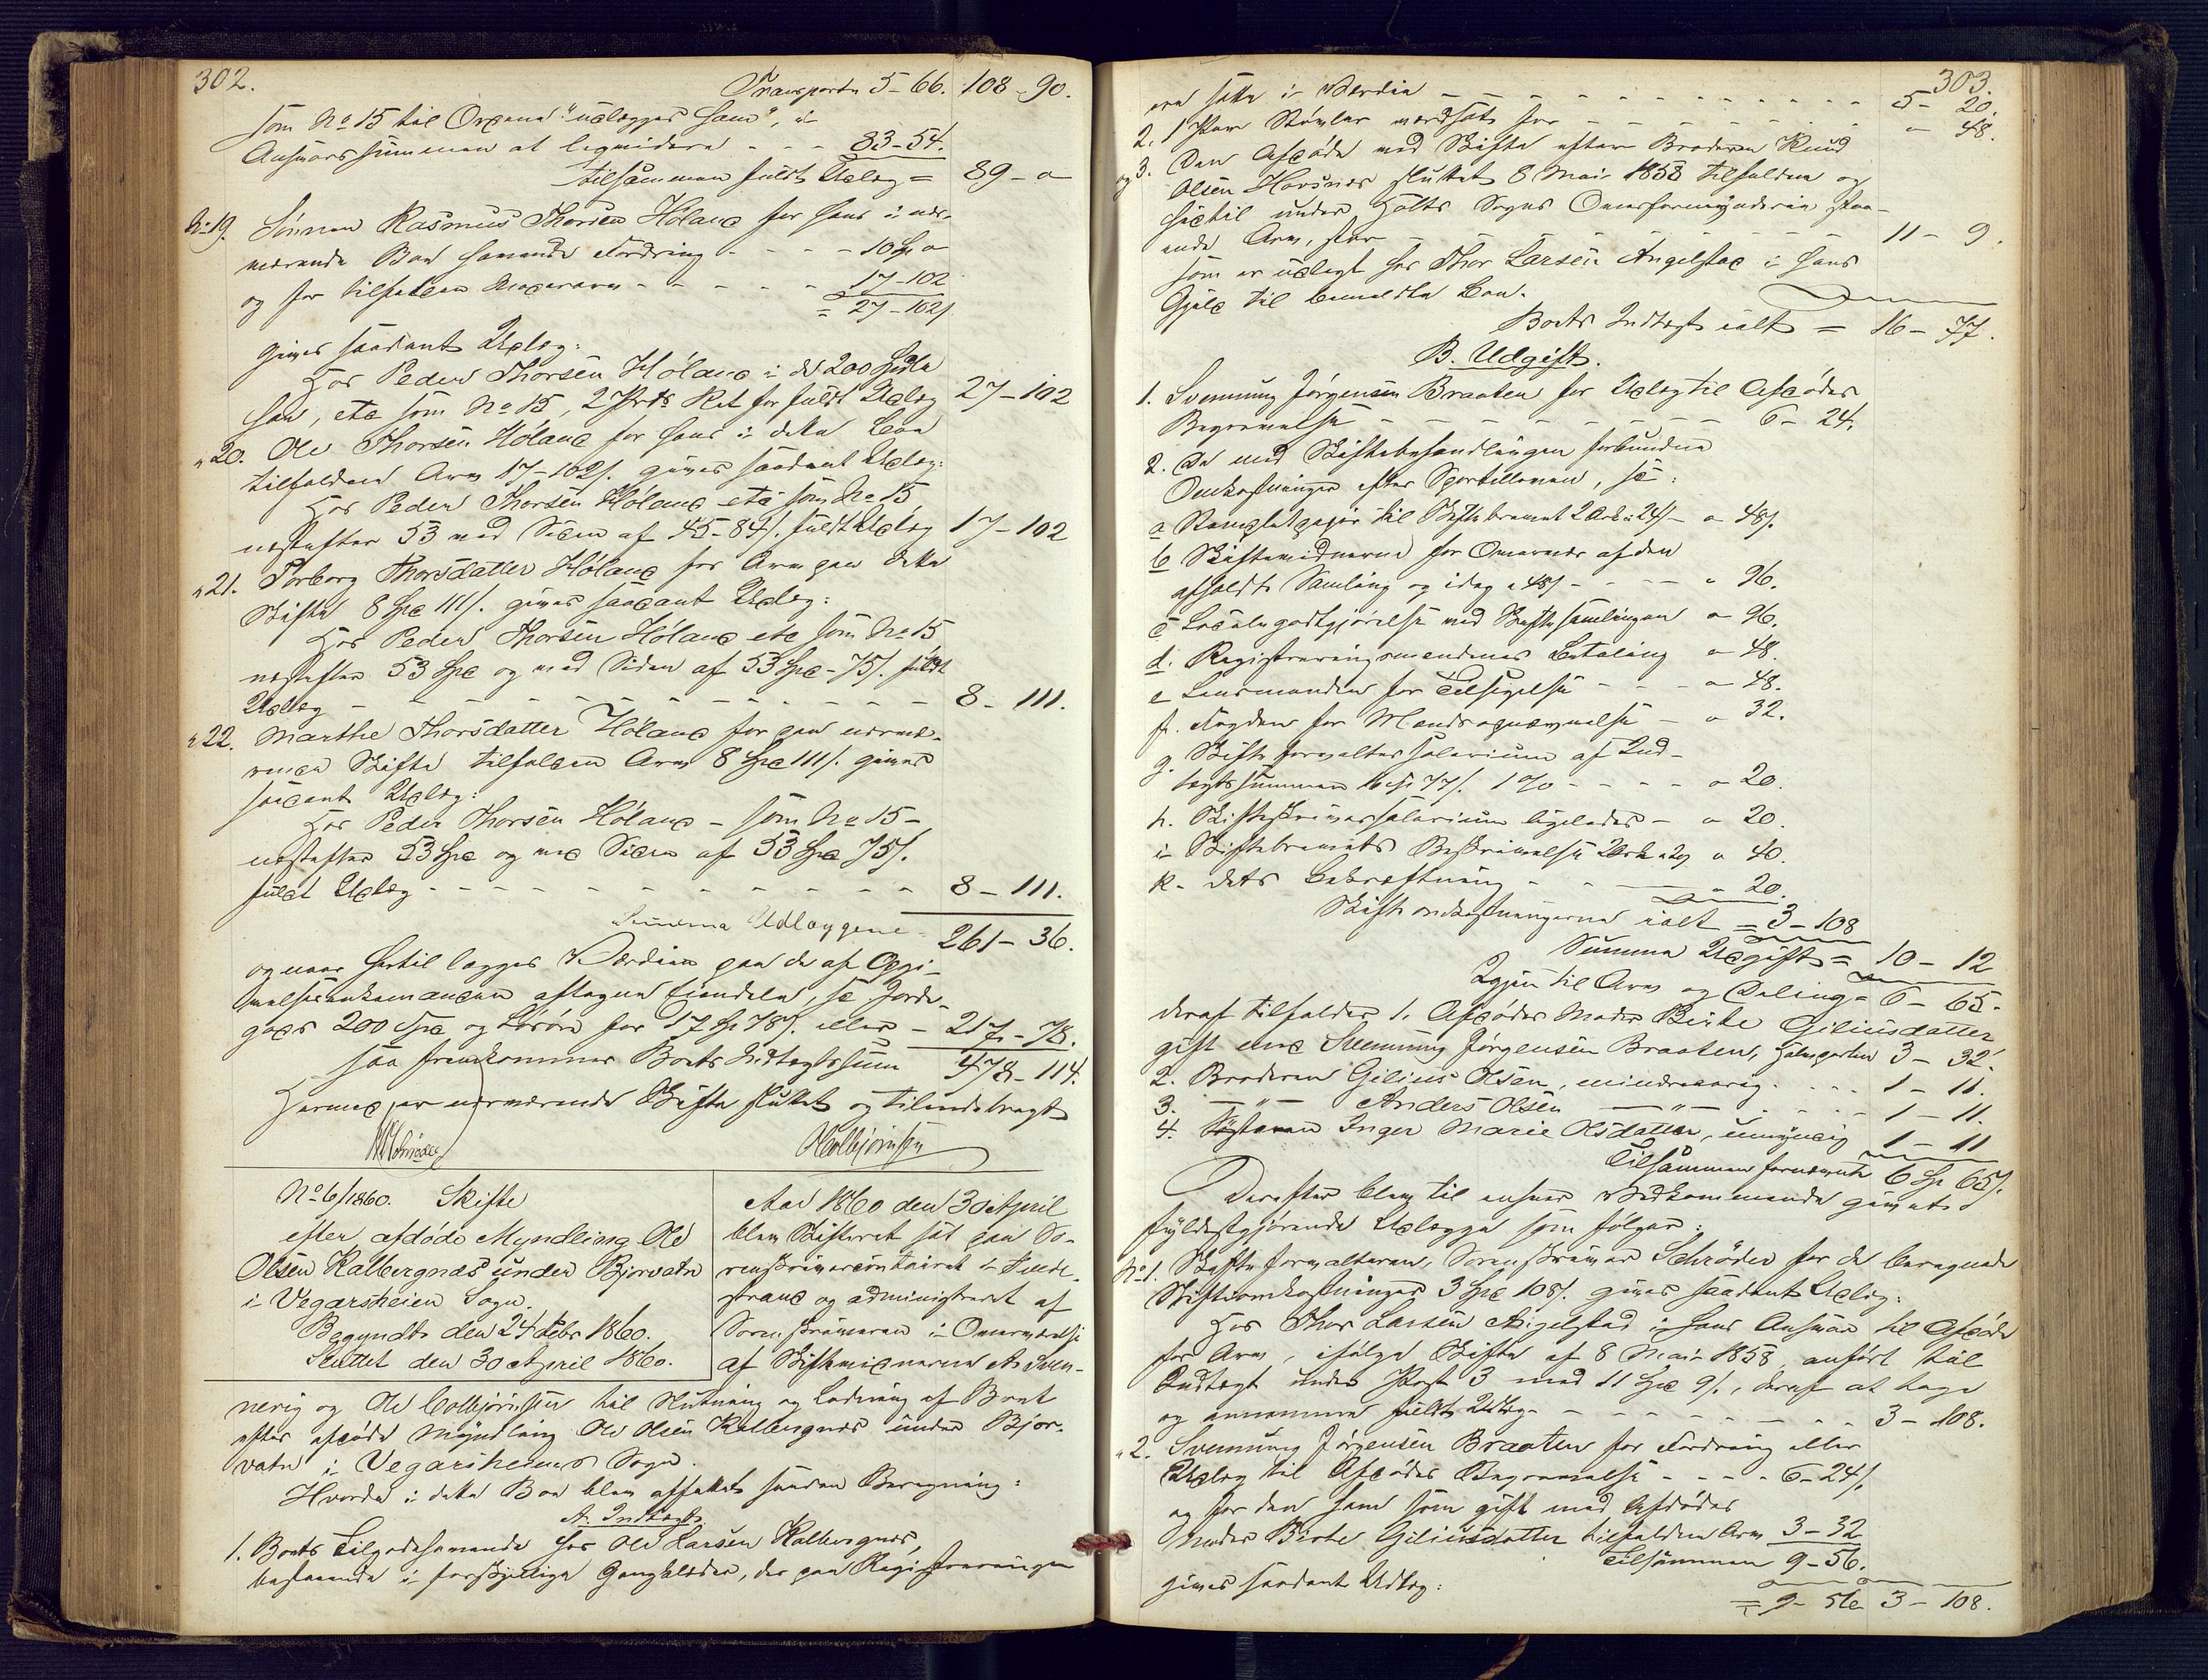 302.
Transporte 5-66. 108-90.
som No 15 til Oxene "udlægges ham", i
Ansvarssummen at liqvidere - - - 83-54.
tilsammen fuldt Udlæg = 89 - "
No 19. Sønnen Rasmus Thorsen Høland for hans i nær-
værende Bo havende Fordring - - - 10 Sp "
og for tilfalden Arv - - - - - 17-102
= 27-102ß.
gives saadant Udlæg:
Hos Peder Thorsen Høland i de 200 Spdlr
han, etc som No 15, 2 Prts Ret for fuldt Udlæg 27-102
" 20. Ole Thorsen Høland for hans i dette Boe
tilfaldne Arv 17-102ß. gives saadant Udlæg:
Hos Peder Thorsen Høland etc som No 15,
næstefter 53 med Siden af 45-84ß. fuldt Udlæg 17-102
" 21. Torborg Thorsdatter Høland for Arv paa dette
Skifte 8 Spd 111ß. gives saadant Udlæg:
Hos Peder Thorsen Høland etc som No 15
næstefter 53 Spd og med Siden af 53 Spd - 75ß. fuldt
Udlæg - - - - - - - - - - - 8 - 111.
" 22. Marthe Thorsdatter Høland for paa nærvæ-
rende Skifte tilfalden Arv 8 Spd 111ß. gives
saadant Udlæg:
Hos Peder Thorsen Høland - som No 15 -
næstefter 53 Spd og med Siden af 53 Spd 75ß.
fuldt Udlæg - - - - - - - - - - 8 - 111.
Summa Udlæggene = 261 - 36.
og naar hertil lægges Værdien paa de af Opgi-
velsesenkemanden aftagne Eiendele, se Jorde-
gods 200 Spd og Løsøre for 17 Sp 78ß. eller - 217 - 78.
saa fremkommer Boets Indtægtssum 478 - 114.
Hermed er nærværende Skifte sluttet og tilendebragt
Schrøder OColbjørnsen
No 6/1860. Skifte
efter afdøde Myndling Ole
Olsen Kalbergnæs under Bjorvatn
i Vegarsheien Sogn.
Begyndt den 24 Febr 1860.
Sluttet den 30 April 1860.
Aar 1860 den 30 April
blev Skifteret sat paa So-
renskrivercontoiret i Tvede-
strand og administreret af
Sorenskriveren i Overværelse
af Skiftevidnerne A. Sven-
nevig og Ole Colbjørnsen til Slutning og Lodning af Boet
efter afdøde Myndling Ole Olsen Kalbergnæs under Bjor-
vatn i Vegarsheiens Sogn.
Hvorda i dette Bo blev affattet saadan Beregning:
A. Indtægt.
1. Boets Tilgodehavende hos Ole Larsen Kalbergnæs,
bestaaende i forskjellige Gangklæder, der paa Registreringen
303.
ere satte i Værdie - - - - - - - - - 5 - 20.
2. 1 Par Støvler værdsat for - - - - - - " 48.
og 3. Den Afdøde ved Skifte efter Broderen Knud
Olsen Hovsnes sluttet 8 Mai 1858 tilfaldne og
hidtil under Holts Sogns Overformynderie staa-
ende Arv, stor - - - - - - - - 11 - 9.
som er udlagt hos Thor Larsen Angelstad i hans
Gjeld til bemeldte Boe.
Boets Indtægt ialt = 16 - 77.
B. Udgift.
1. Svennung Jørgensen Braaten for Udlæg til Afdødes
Begravelse - - - - - - - - 6 - 24.
2. De med Skiftebehandlingen forbundne
Omkostninger efter Sportelloven, se:
a Stemplet papir til Skiftebrevet 2 Ark a 24ß - " 48ß.
b Skiftevidnerne for Overvær af den
afholdte Samling og idag a 48ß - - - - " 96.
c Localegodtgjørelse ved Skiftesamlingen " 96.
d. Registreringsmændenes Betaling " 48.
e Lensmanden for Tilsigelse - - - " 48.
f. Fogden for Mændsopnævnelse - " 32.
g. Skifteforvaltersalarium af Ind-
tægtssummen 16 Sp 77ß. 1 % - - - - " 20.
h. Skifteskriversalarium ligeledes - " 20.
i Skiftebrevets Beskrivelse 2 Ark a 20 " 40.
k. dets Bekræftning - - - " 20.
Skifteomkostningerne ialt = 3 - 108
Summa Udgift = 10 - 12
Igjen til Arv og Deling = 6 - 65.
deraf tilfalder 1. Afdødes Moder Birte Giliusdatter
gift med Svennung Jørgensen Braaten, Halvparten 3 - 32.
2. Broderen Gilius Olsen, mindreaarig - - - 1 - 11.
3. — " — Anders Olsen — " — - - - 1 - 11.
4. Søsteren Inger Marie Olsdatter, umyndig 1 - 11
Tilsammen fornævnte 6 Sp 65ß.
Derefter blev til enhver Vedkommende givet
fyldestgjørende Udlægge som følger:
No 1. Skifteforvalteren, Sorenskriver Schrøder for de beregnede
Skifteomkostninger 3 Spd 108ß. gives saadant Udlæg:
Hos Thor Larsen Angelstad i hans Ansvar til Afdøde
for Arv, ifølge Skifte af 8 Mai 1858, anført til
Indtægt under Post 3 med 11 Spd 9ß., deraf at tage
og annamme fuldt Udlæg - - - - - - - - 3 - 108.
" 2. Svennung Jørgensen Braaten for Fordring eller
Udlæg til Afdødes Begravelse - - - - 6 - 24ß.
og for den ham som gift med Afdødes
Moder Birte Giliusdatter tilfaldne Arv 3 - 32
Tilsammen 9 - 56.
gives saadant Udlæg:
= 9 - 56 3 - 108.